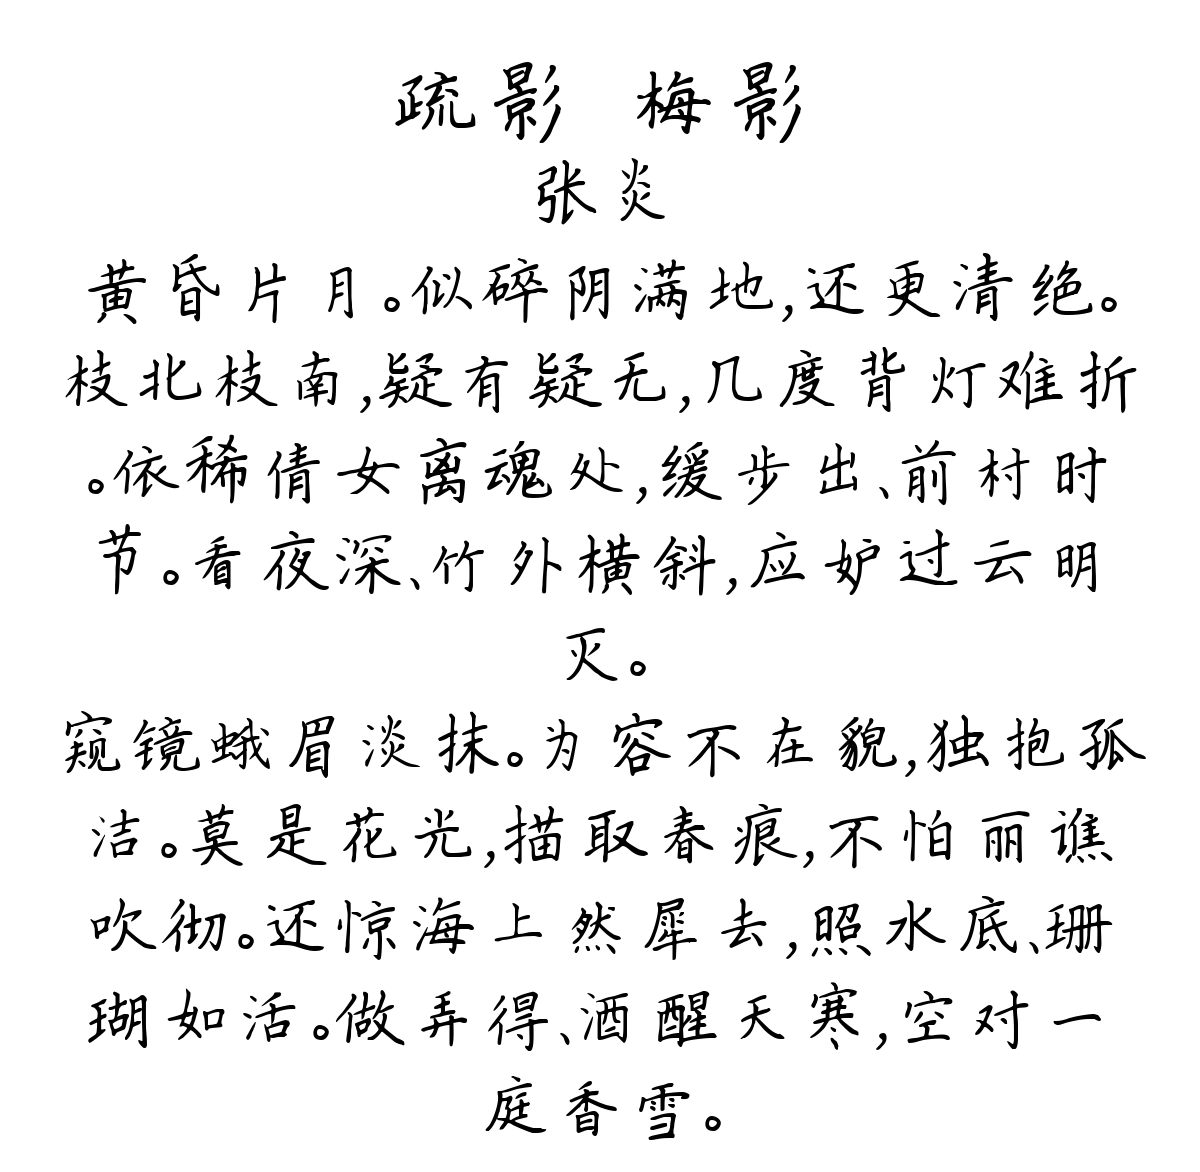 疏影 梅影
张炎
黄昏片月。似碎阴满地,还更清绝。
枝北枝南,疑有疑无,几度背灯难折
。依稀倩女离魂处,缓步出、前村时
节。看夜深、竹外横斜,应妒过云明
灭。
窥镜蛾眉淡抹。为容不在貌,独抱孤
洁。莫是花光,描取春痕,不怕丽谯
吹彻。还惊海上然犀去,照水底、珊
瑚如活。做弄得、酒醒天寒,空对一
庭香雪。